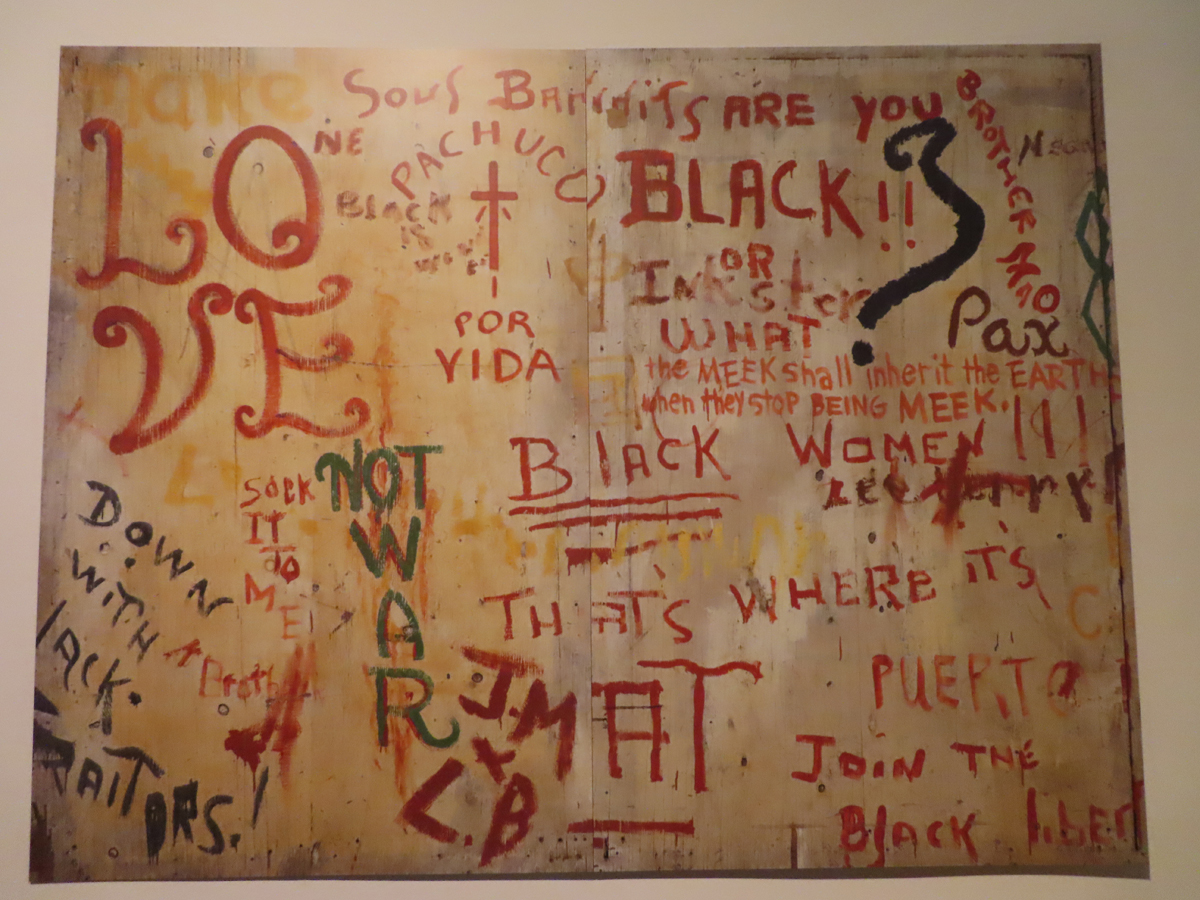 make
SOUL BANDITS ARE YOU
LO
VE
NE
PACHUCO
BlACK
is
POR
VIDA
BLACK!!
?
OR
Inkster
WHAT
BROTHER
Pax
the MEEK shall inherit the EARTH
when they stop BEING MEEK.
BlACK WOMEN !!!
NOT
WAR
SOCK
IT
to
ME!
DOWN
WITH
lACK.
RAITORS.!
Broth
THATS WHERE ITS
AT
J.M
x
C.B
PUERTO
JOIN THE
BlACK liber